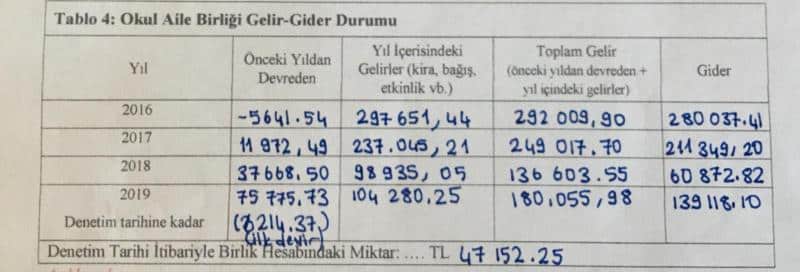 Tablo 4: Okul Aile Birliği Gelir-Gider Durumu
Yıl
Önceki Yıldan
Devreden
Yıl İçerisindeki
Gelirler (kira, bağış,
etkinlik vb.)
Toplam Gelir
(önceki yıldan devreden +
yıl içindeki gelirler)
Gider
2016 -5641.54 297651,44 292 009,90 280 037.41
2017 11 972,49 237.045,21 249 017.70 211 349,20
2018 37668,50 98935,05 136 603.55 60 872.82
2019 75 775,73 104 280.25 180.055,98 139 118.10
Denetim tarihine kadar (8214.37)
(ilk devir)
Denetim Tarihi İtibariyle Birlik Hesabındaki Miktar: .... TL 47 152.25